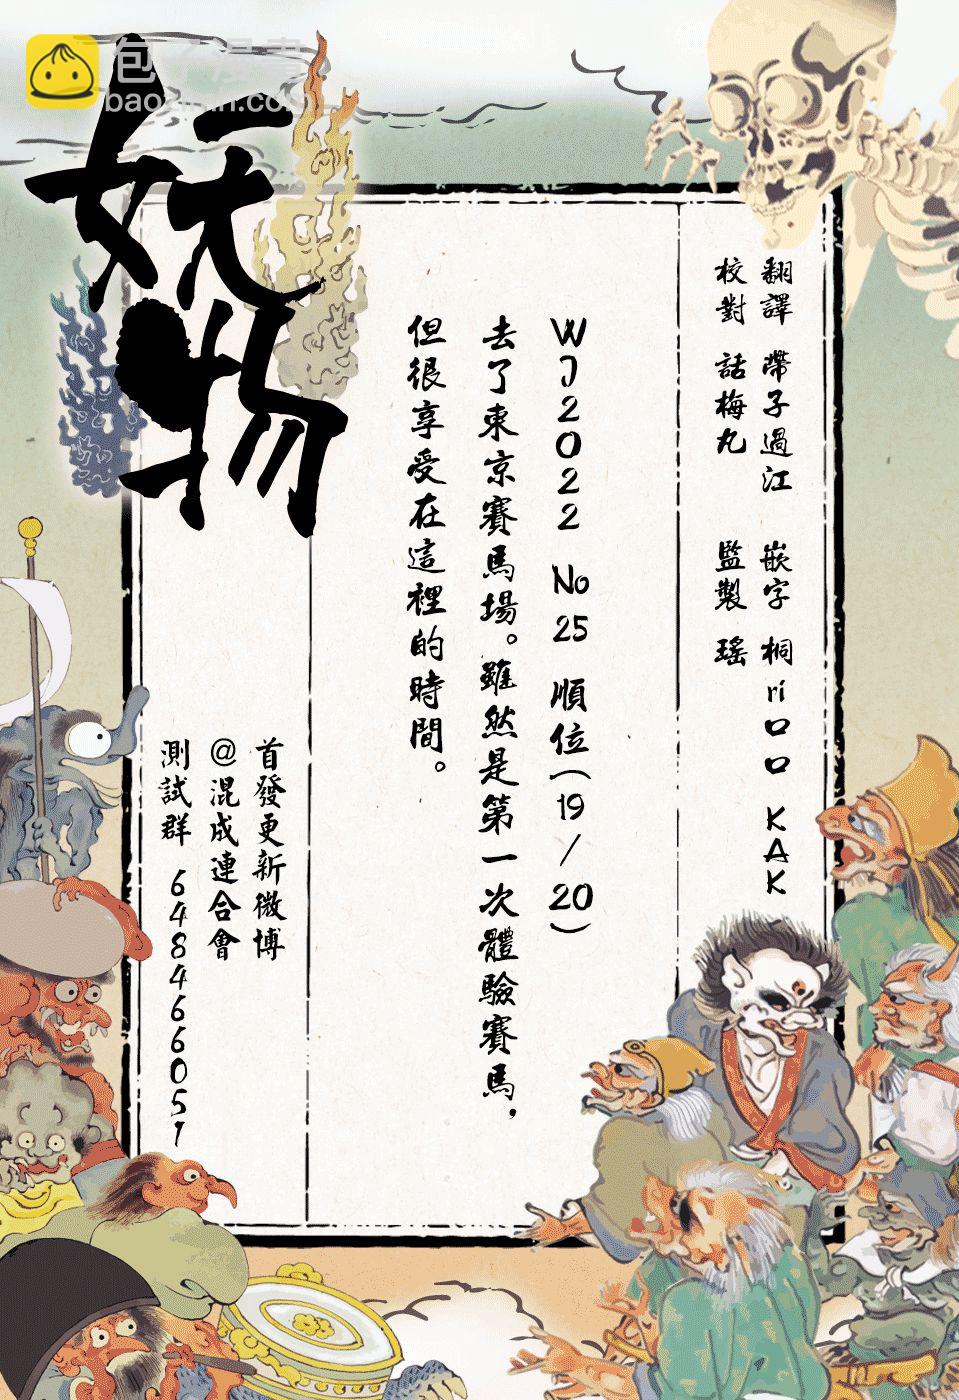 包子漫畫
baozimh.com
妖物
翻譯 帶子過江 嵌字 桐ri口口 KAK
校對 話梅丸 監製 瑤
WJ2022 No 25 順位(19/20)
去了東京賽馬場。雖然是第一次體驗賽馬,
但很享受在這裡的時間。
首發更新微博
@混成連合會
測試群 648466051